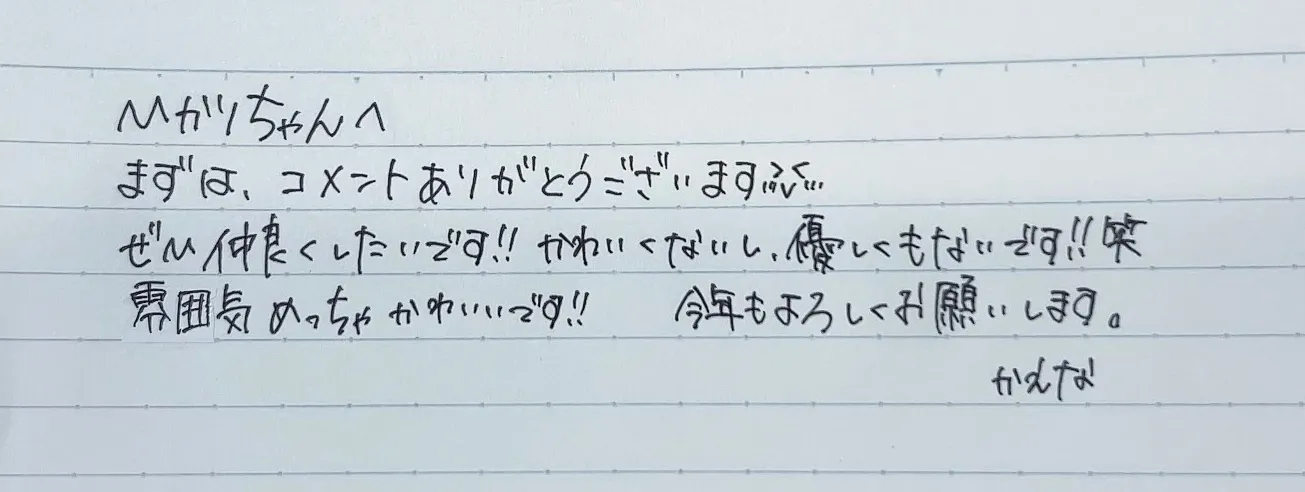 ひがりちゃんへ
まずは、コメントありがとうございます
ぜひ仲良くしたいです!! かわいくないし、優しくもないです!!笑
雰囲気めっちゃかわいいです!! 今年もよろしくお願いします。
かえな